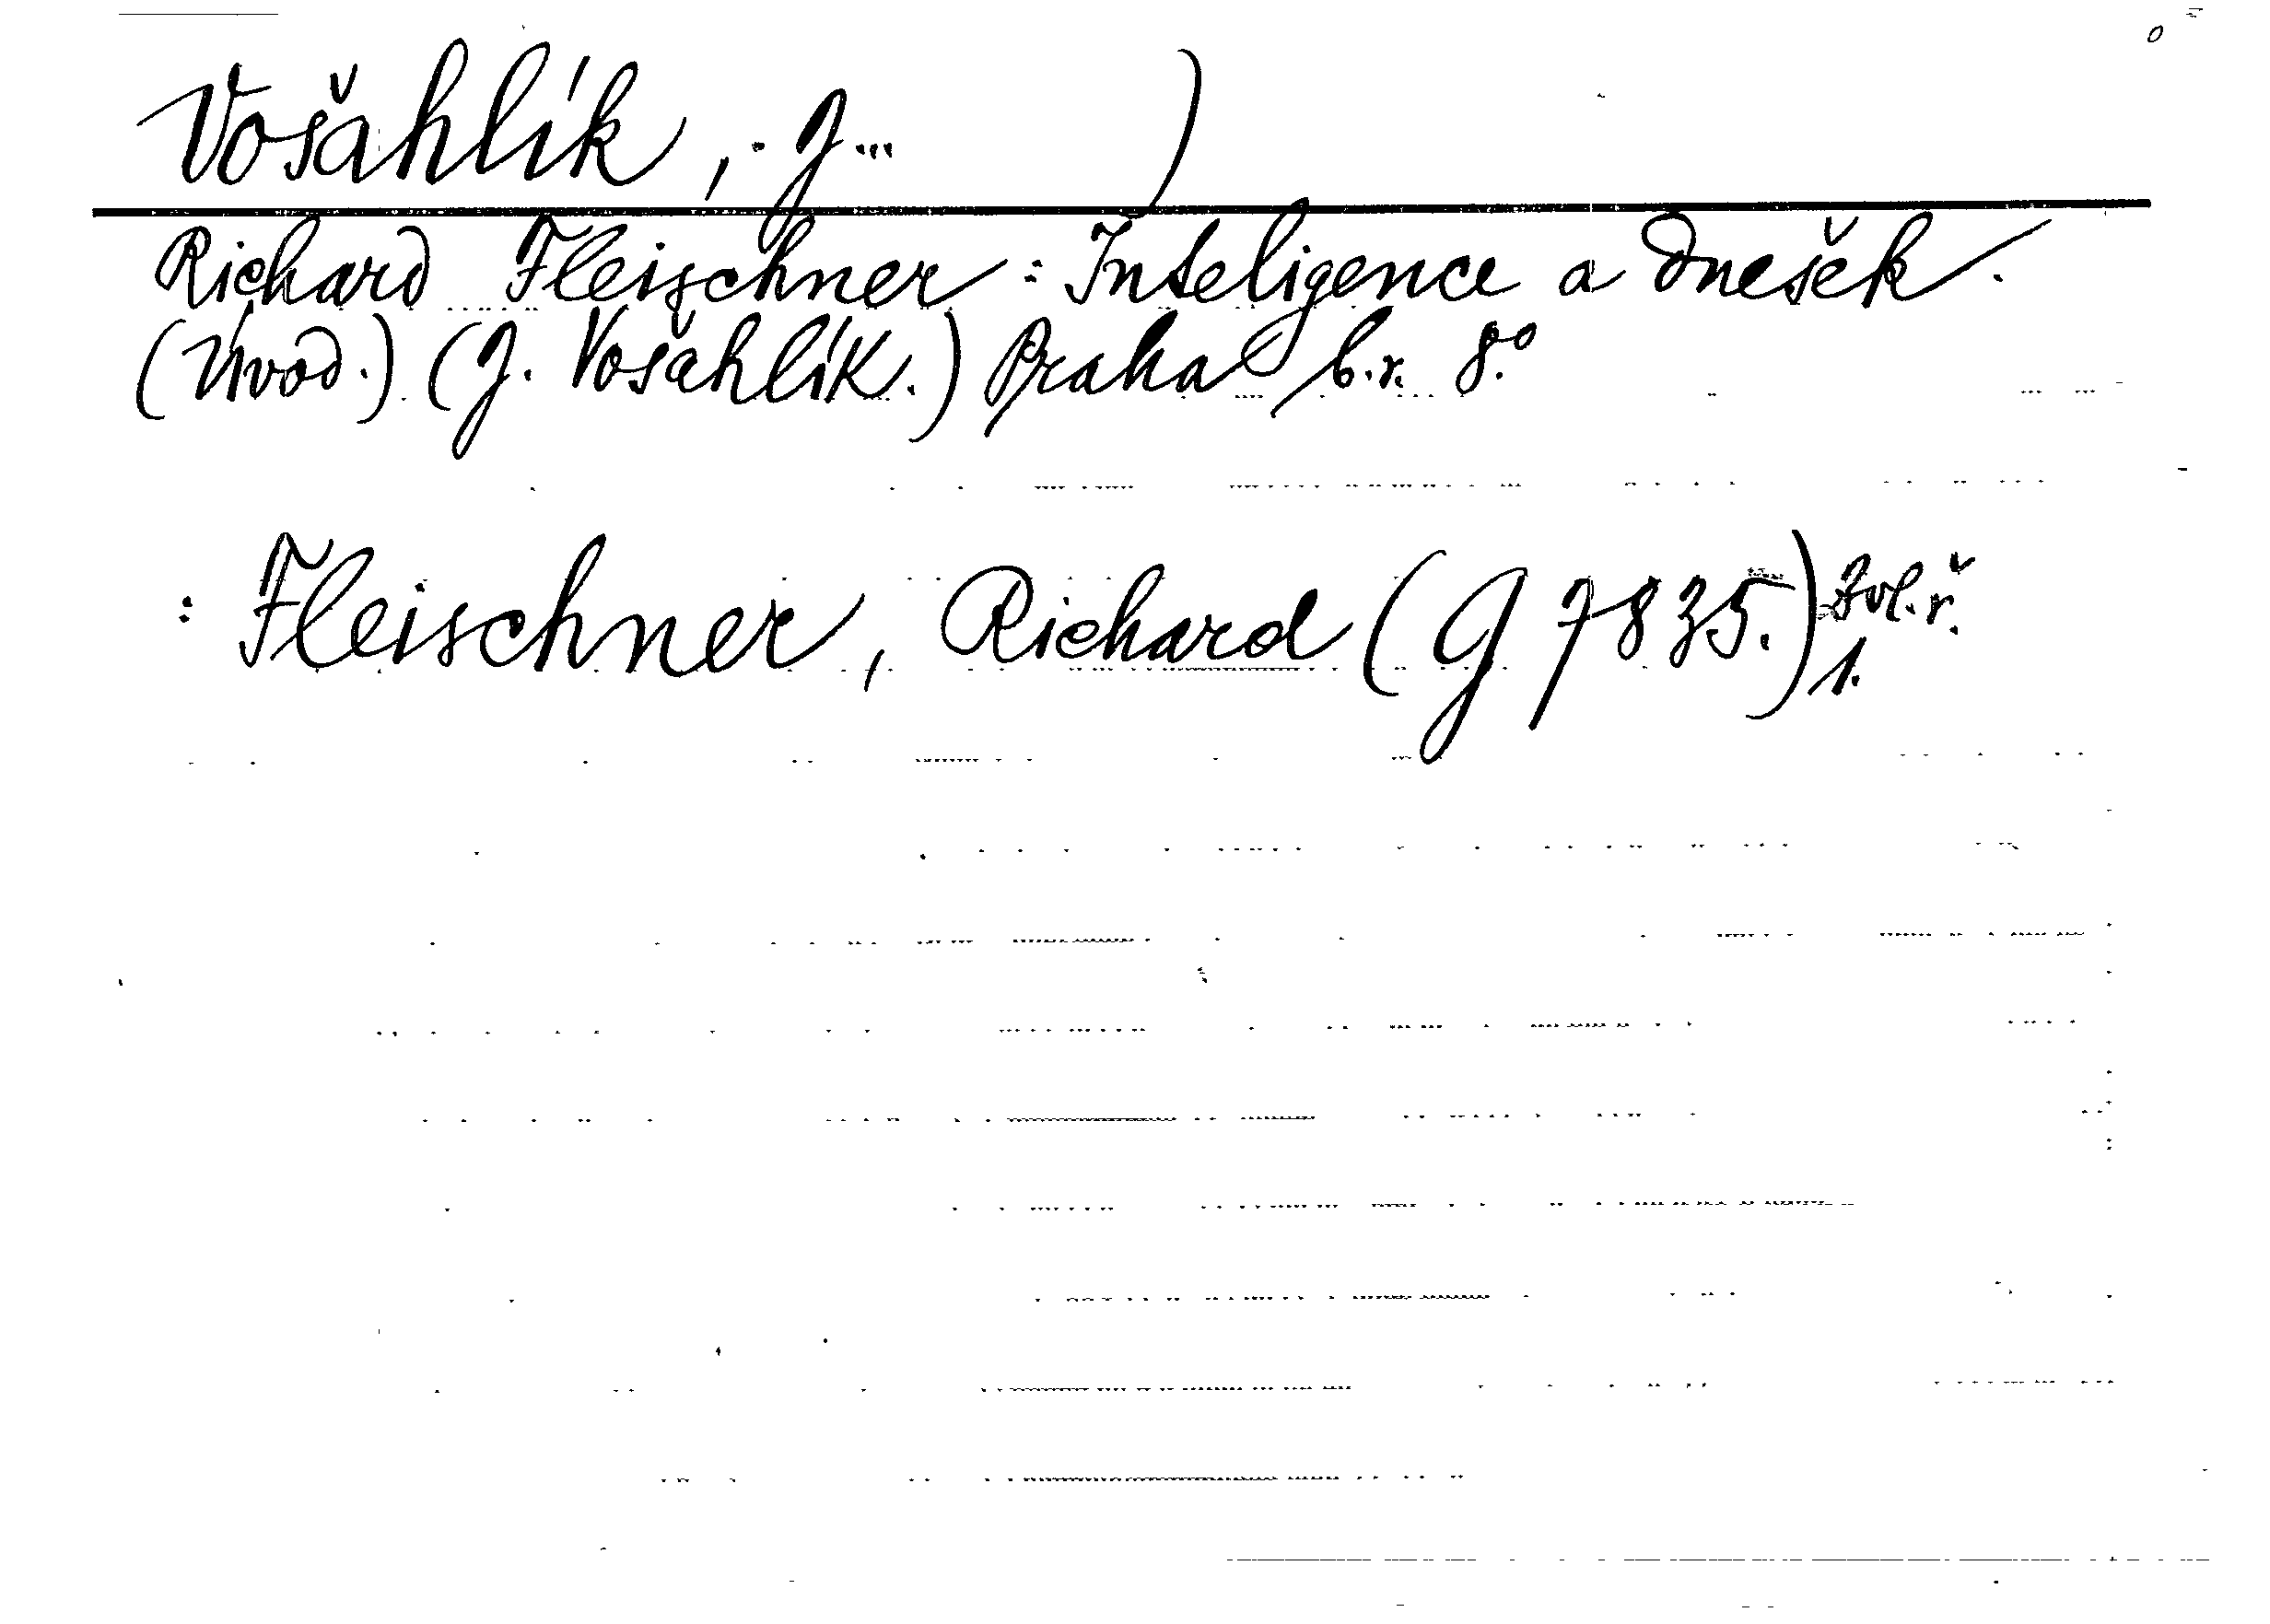 Vošahlík, J... )
Richard Fleischner: Inteligence a dnešek.
(Úvod.) (J. Vošahlík.) Praha b.r. 8.°
: Fleischner, Richard (G 7835.) Zvl.ř.
1.